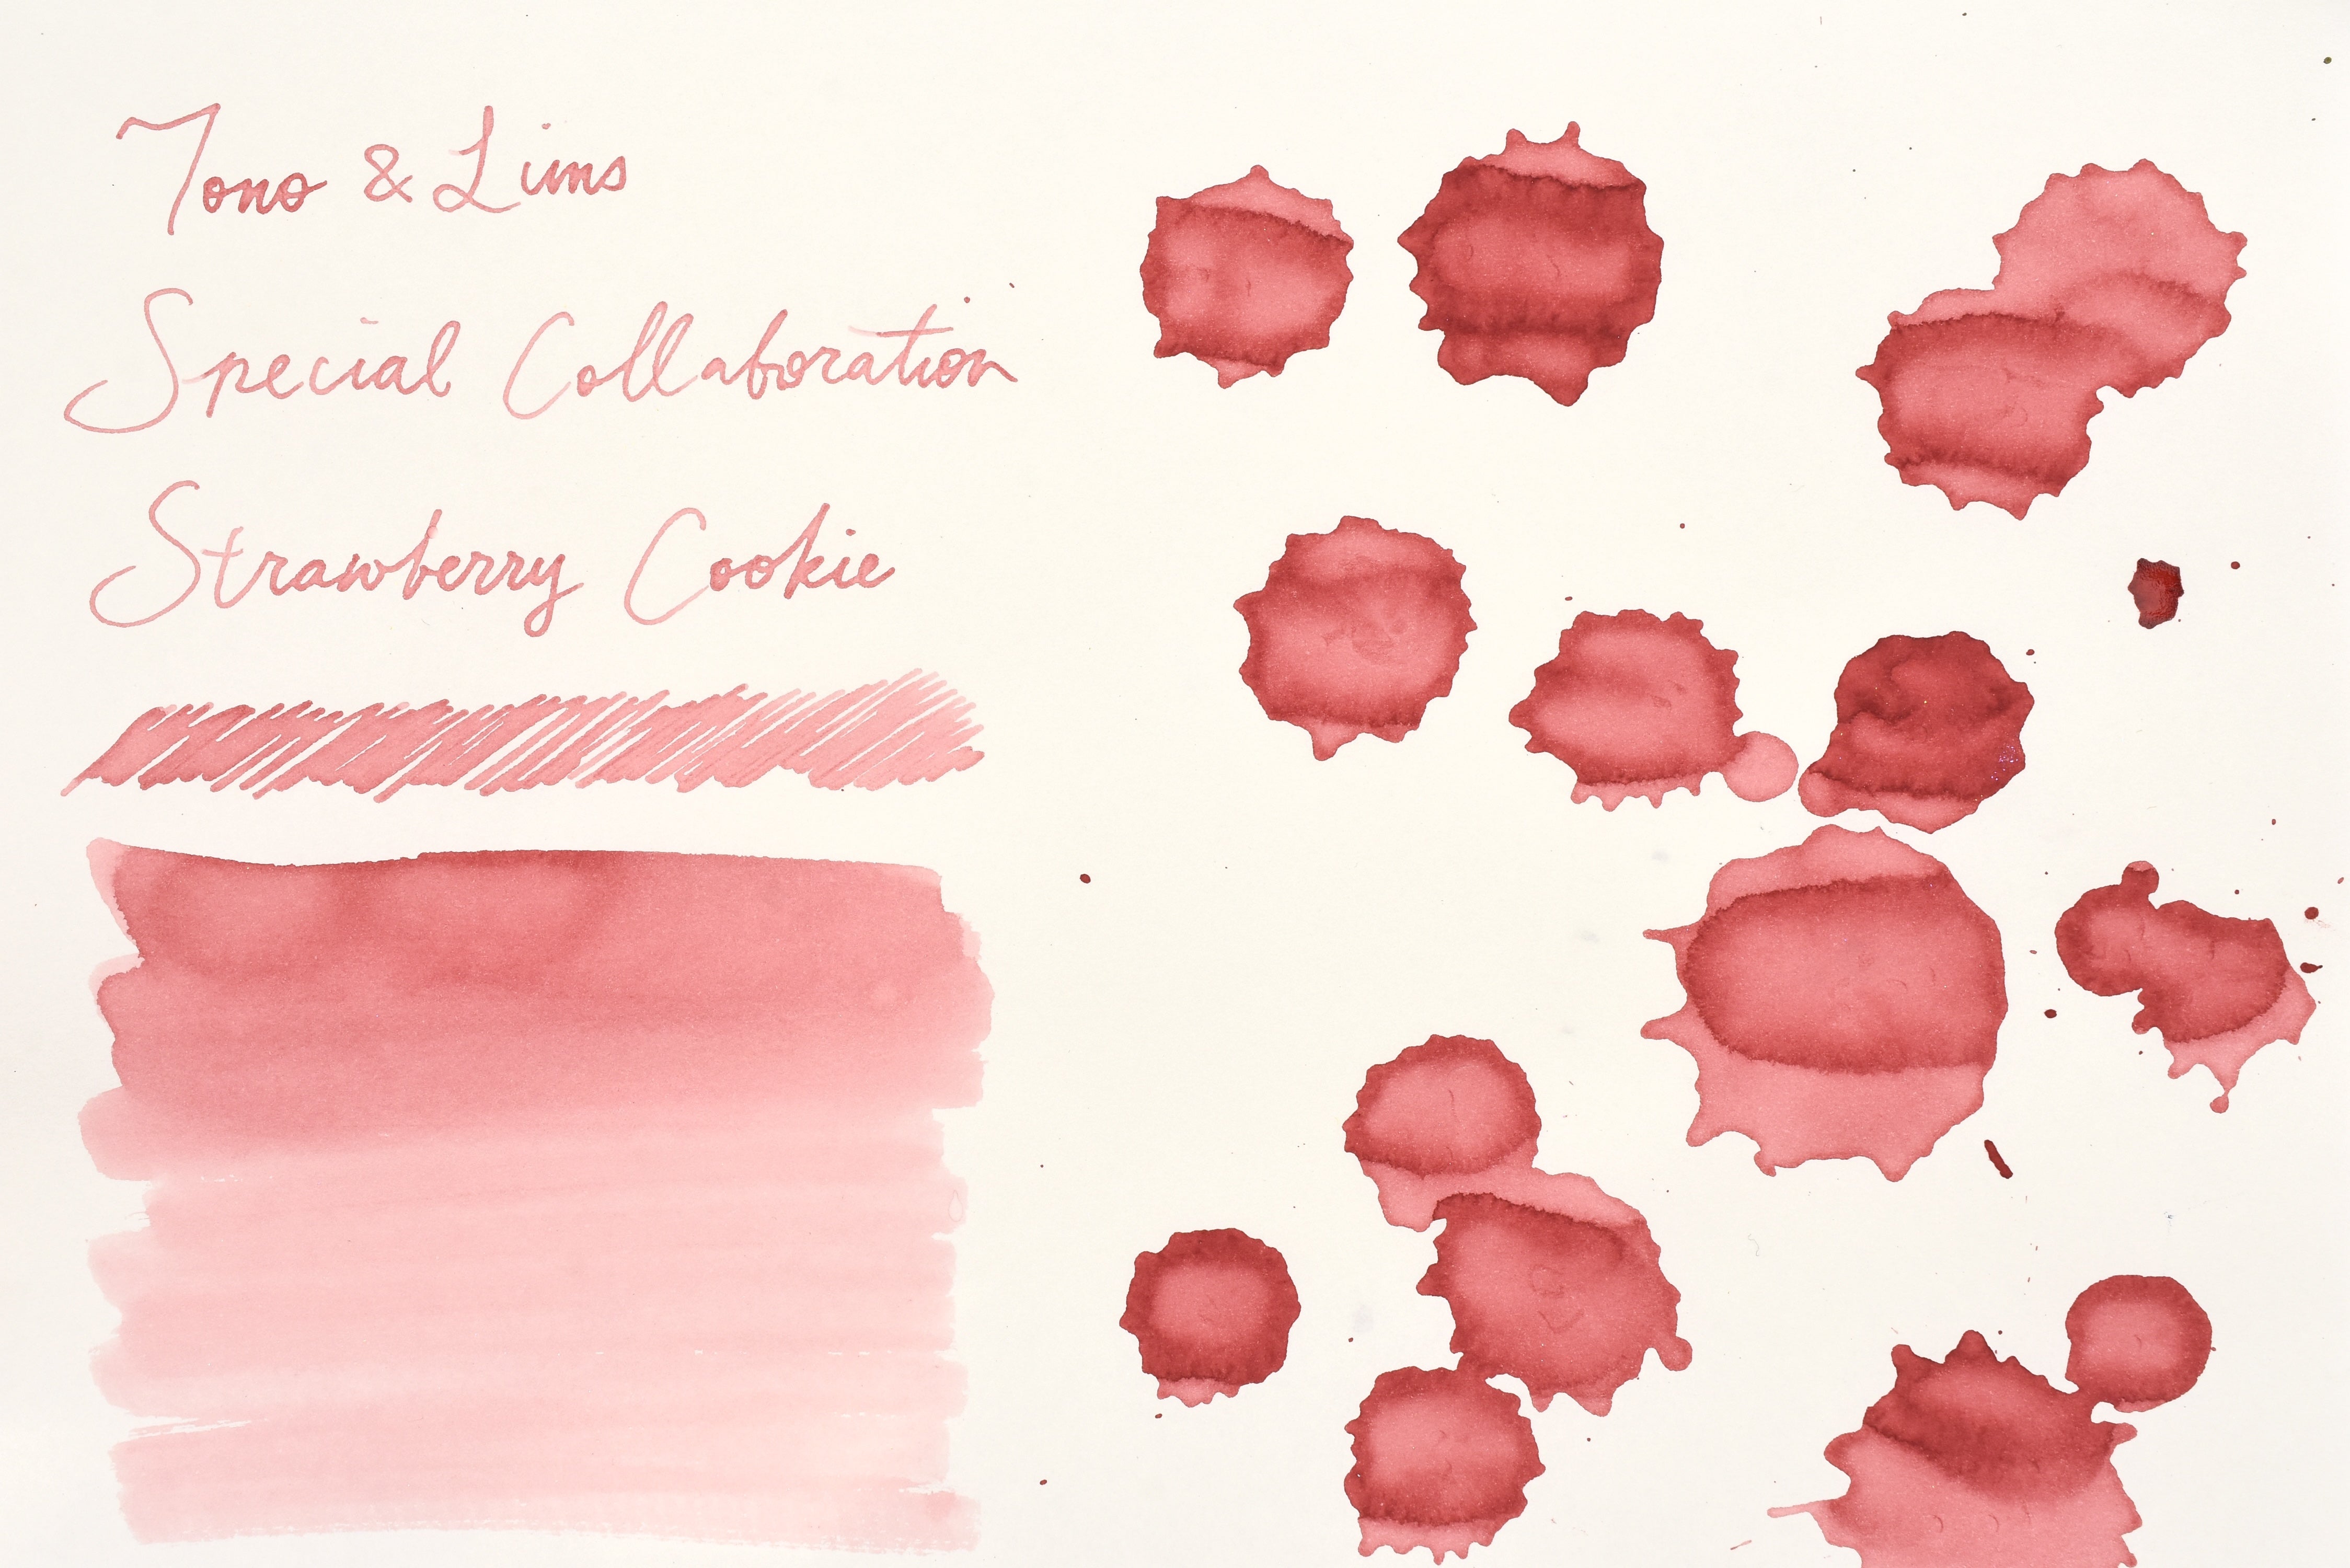 Tono & Lims
Special Collaboration
Strawberry Cookie